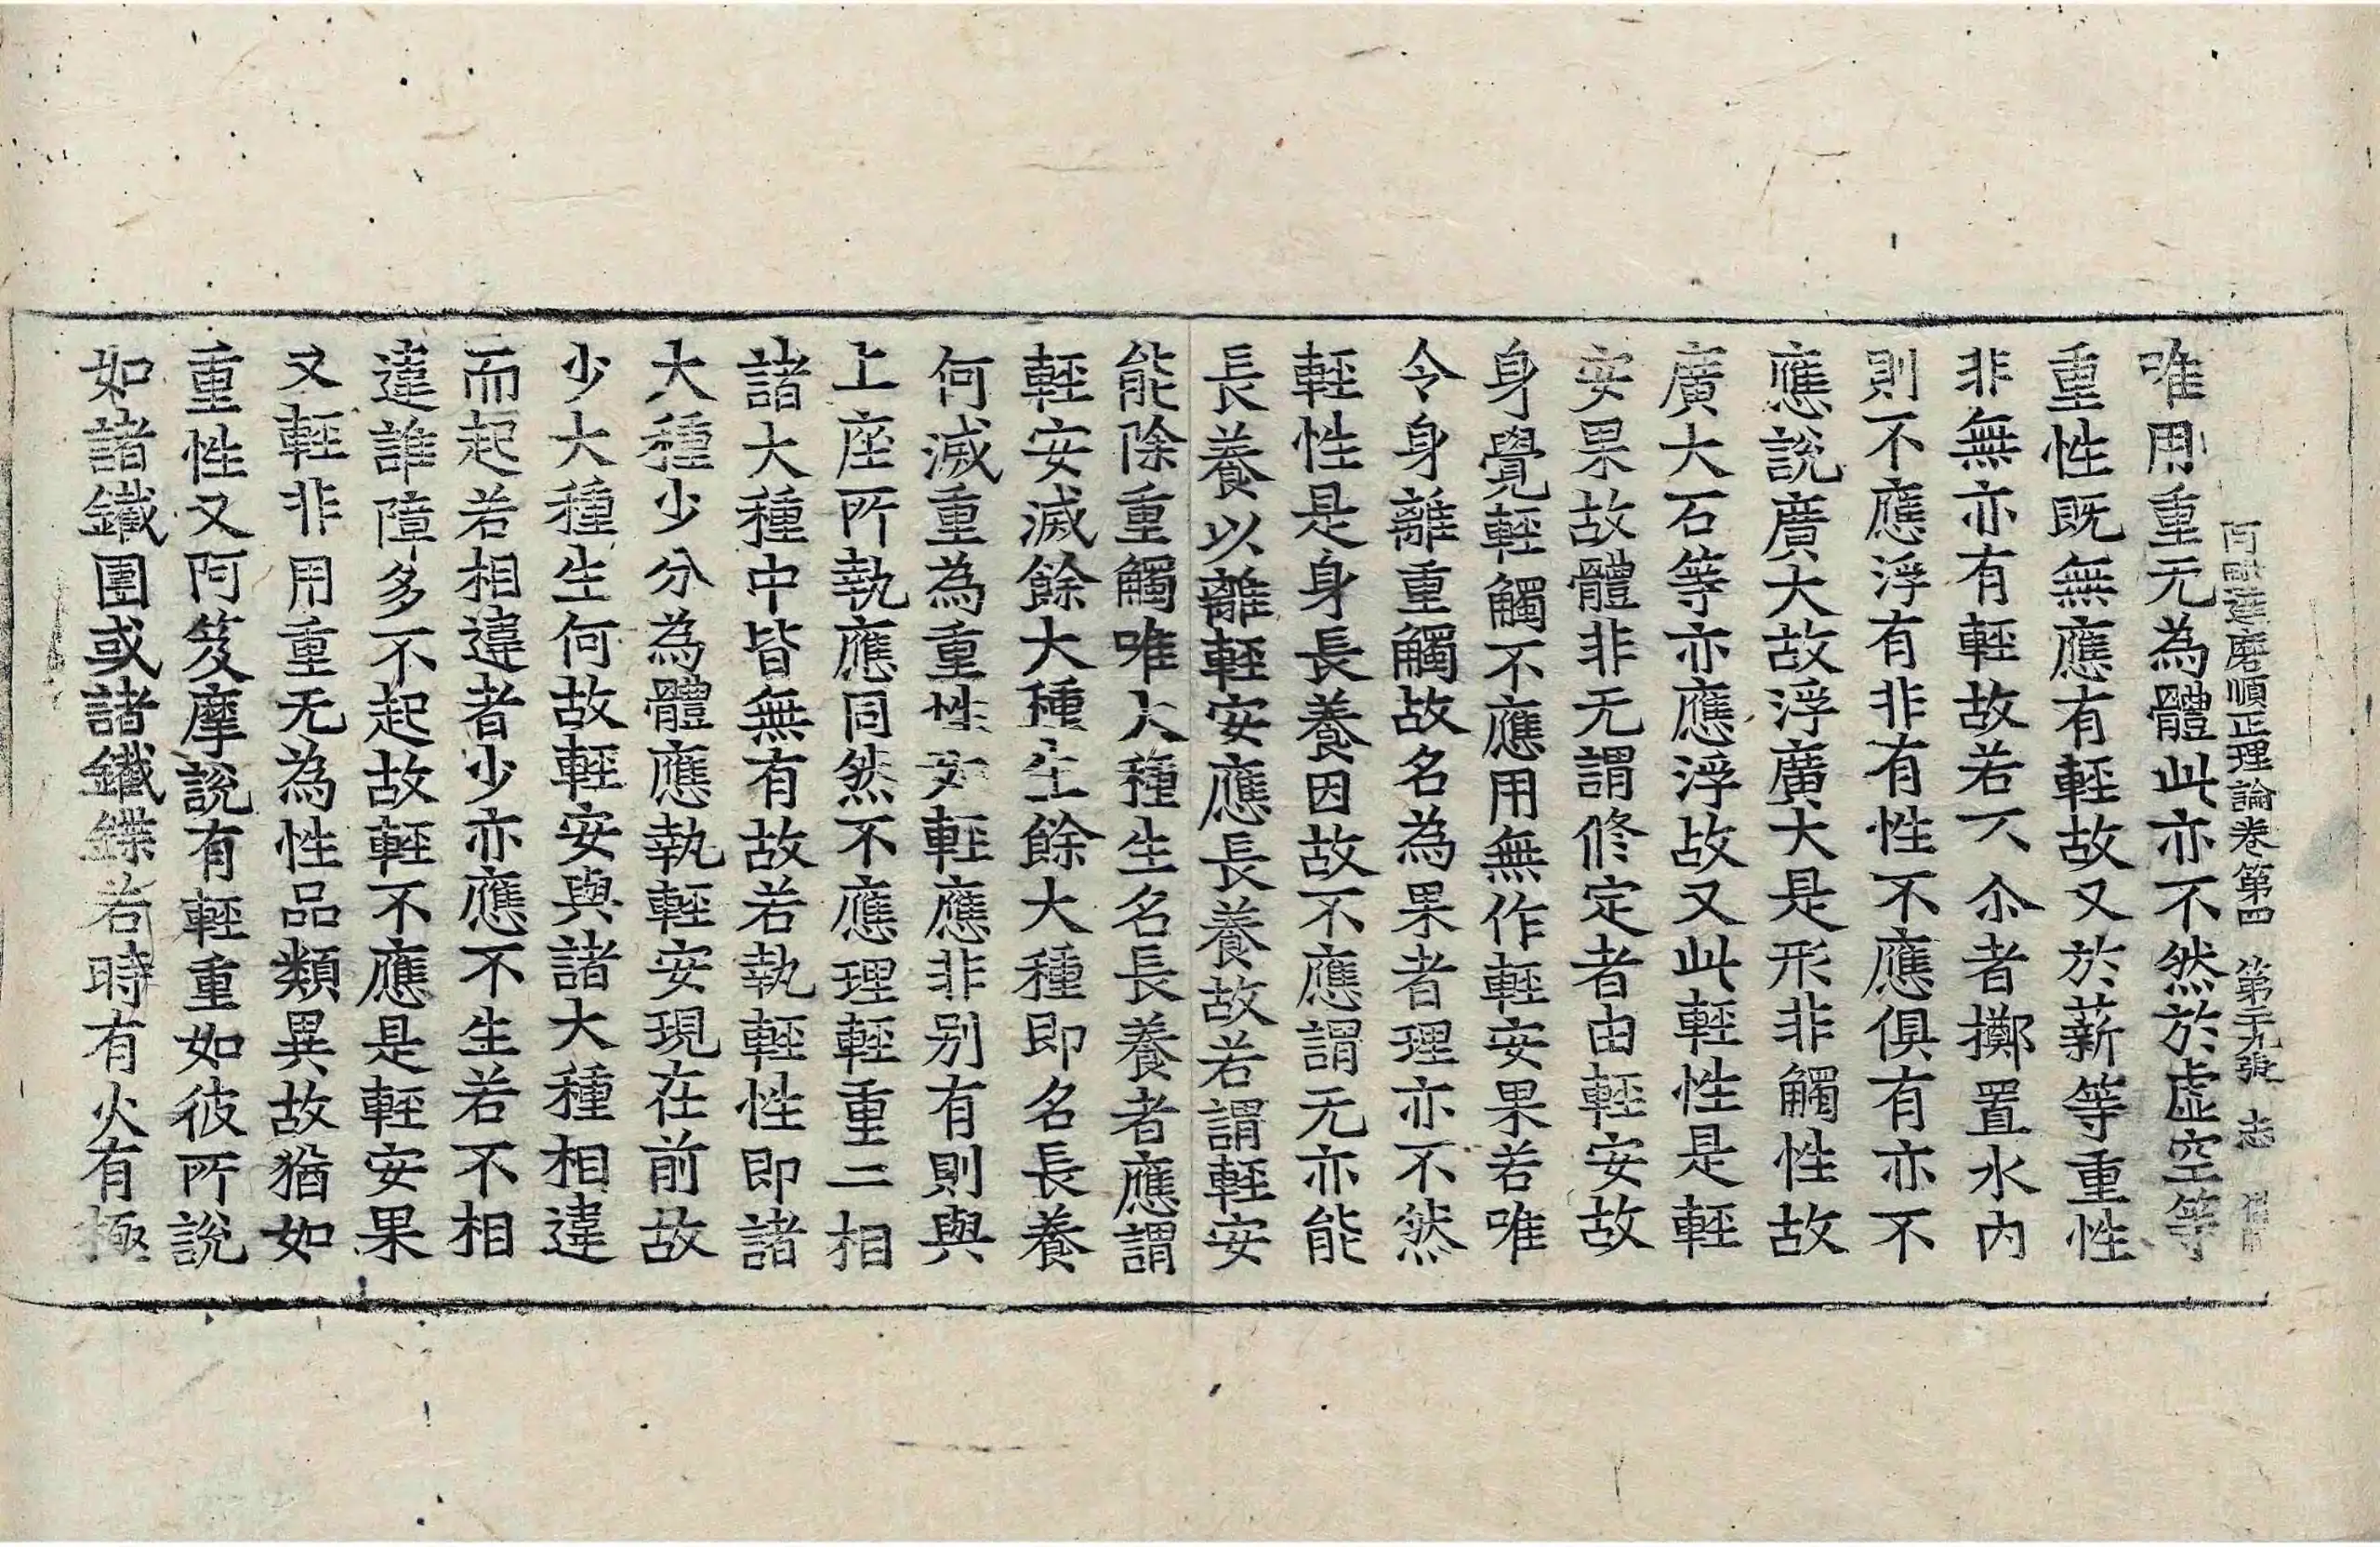 阿毗達磨順正理論卷第四 第十九張 志
唯用重无為體此亦不然於虛空等
重性既無應有輕故又於薪等重性
非無亦有輕故若不尒者擲置水內
則不應浮有非有性不應俱有亦不
應說廣大故浮廣大是形非觸性故
廣大石等亦應浮故又此輕性是輕
安果故體非无謂修定者由輕安故
身覺輕觸不應用無作輕安果若唯
令身離重觸故名為果者理亦不然
輕性是身長養因故不應謂无亦能
長養以離輕安應長養故若謂輕安
能除重觸唯大種生名長養者應謂
輕安滅餘大種生餘大種即名長養
何滅重為重性又輕應非別有則與
上座所執應同然不應理輕重二相
諸大種中皆無有故若執輕性即諸
大種少分為體應執輕安現在前故
少大種生何故輕安與諸大種相違
而起若相違者少亦應不生若不相
違誰障多不起故輕不應是輕安果
又輕非用重无為性品類異故猶如
重性又阿笈摩說有輕重如彼所說
如諸鐵團或諸鐵鍱若時有火有極